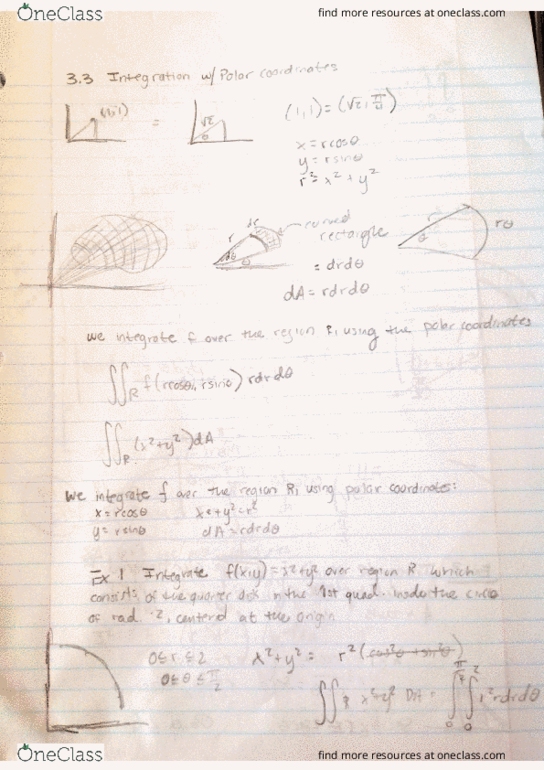 OneClass
find more resources at oneclass.com
3.3 Integration w/ Polar coordinates
(1,1)
=
√2
θ
(1,1) = (√2, π/4)
x = rcosθ
y = rsinθ
r² = x² + y²
dr
r
dθ
θ
curved
rectangle
= drdθ
dA = rdrdθ
r
θ
rθ
we integrate f over the region R, using the polar coordinates
∬R f(rcosθ, rsinθ) rdrdθ
∬R (x²+y²)dA
we integrate f over the region R, using polar coordinates:
x = rcosθ x²+y²=r²
y = rsinθ dA = rdrdθ
Ex 1 Integrate f(x,y) = x²+y² over region R which
consists of the quarter disk in the 1st quad. inside the circle
of rad 2, centerd at the origin
0≤r≤2 x²+y² = r²(cos²θ + sin²θ)
0≤θ≤π/2
∬R x²+y² dA = ∫0 ∫0 2 r² rdrdθ
OneClass
find more resources at oneclass.com